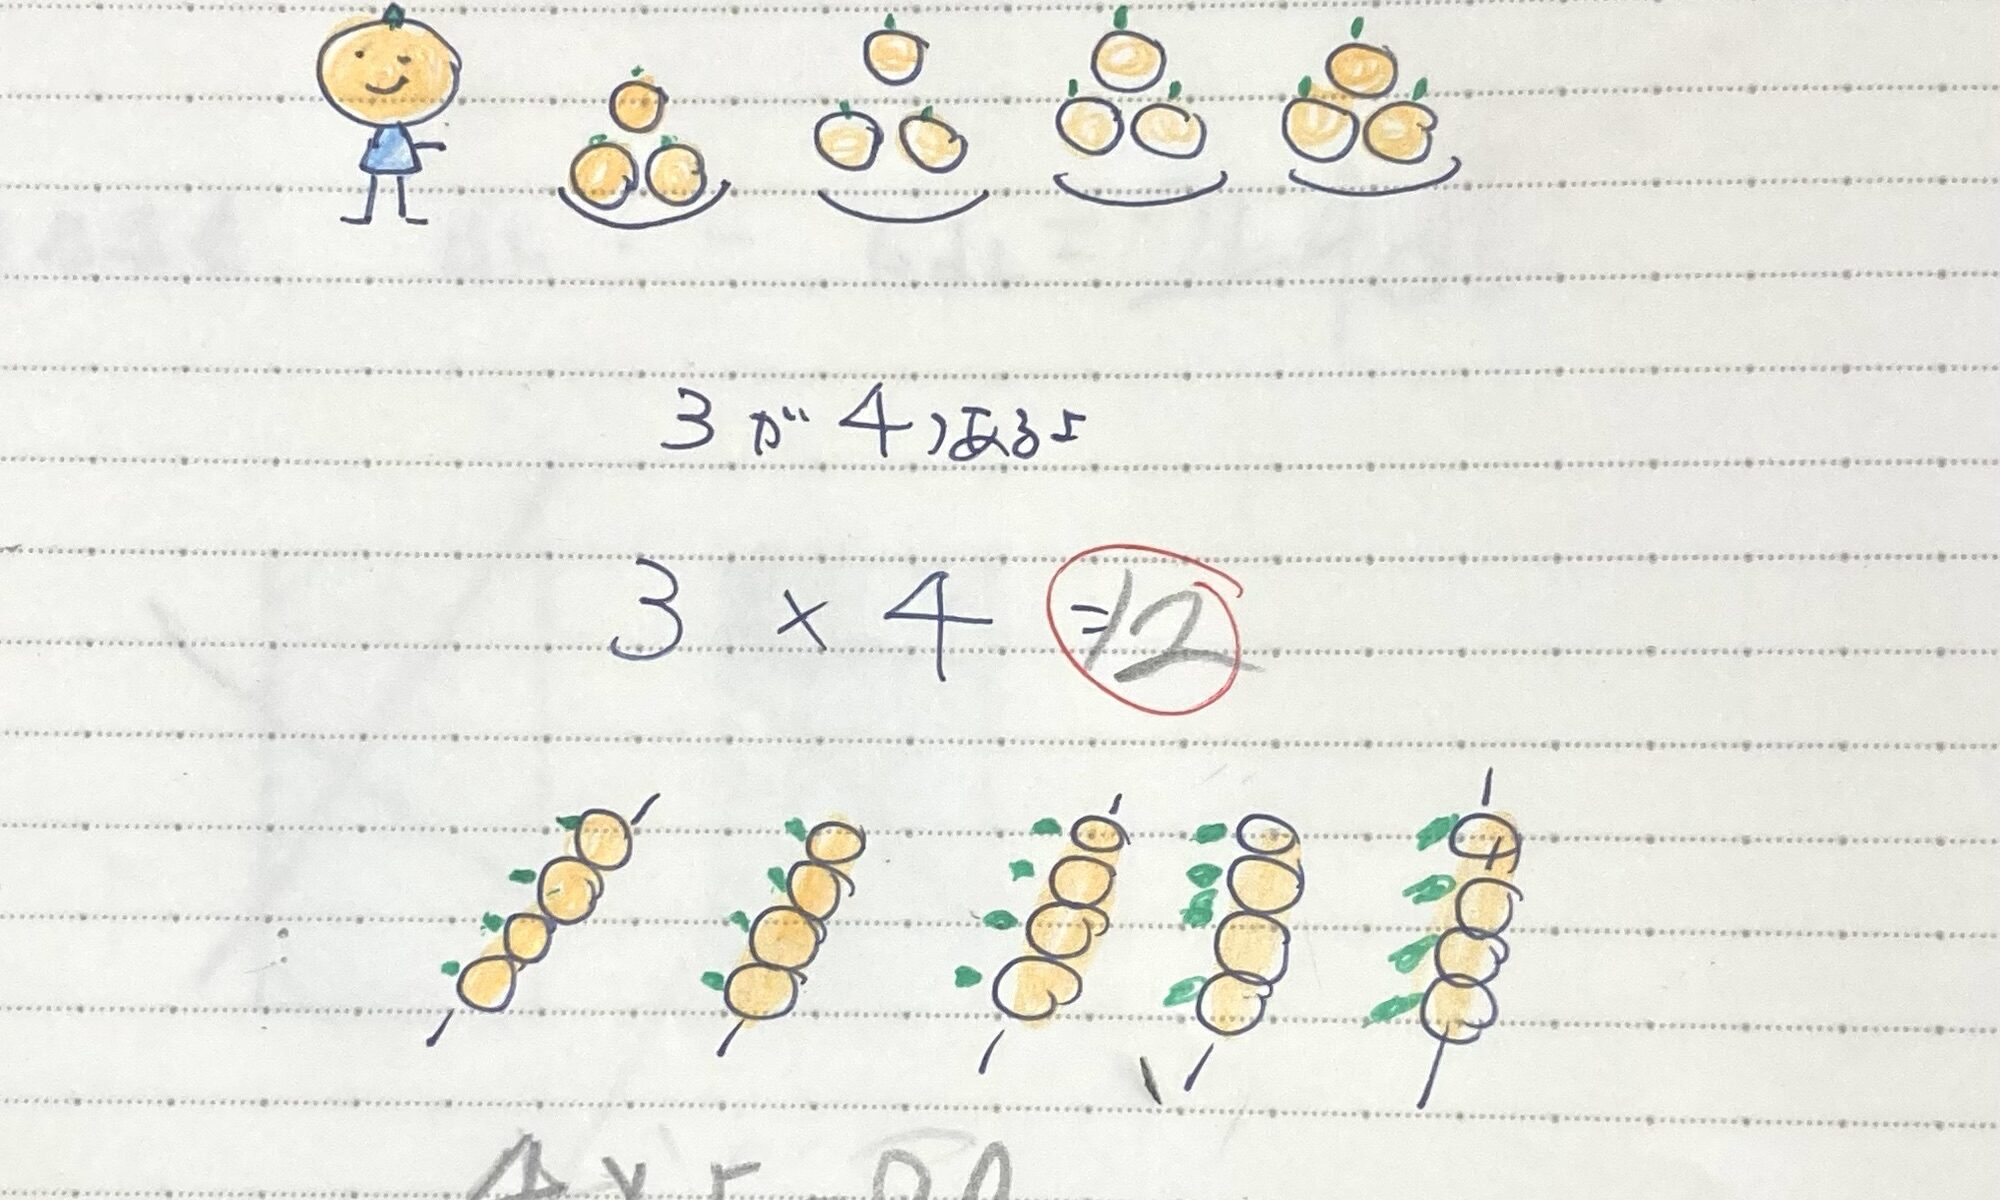 3が4つあるよ
3×4=12
4×5=20